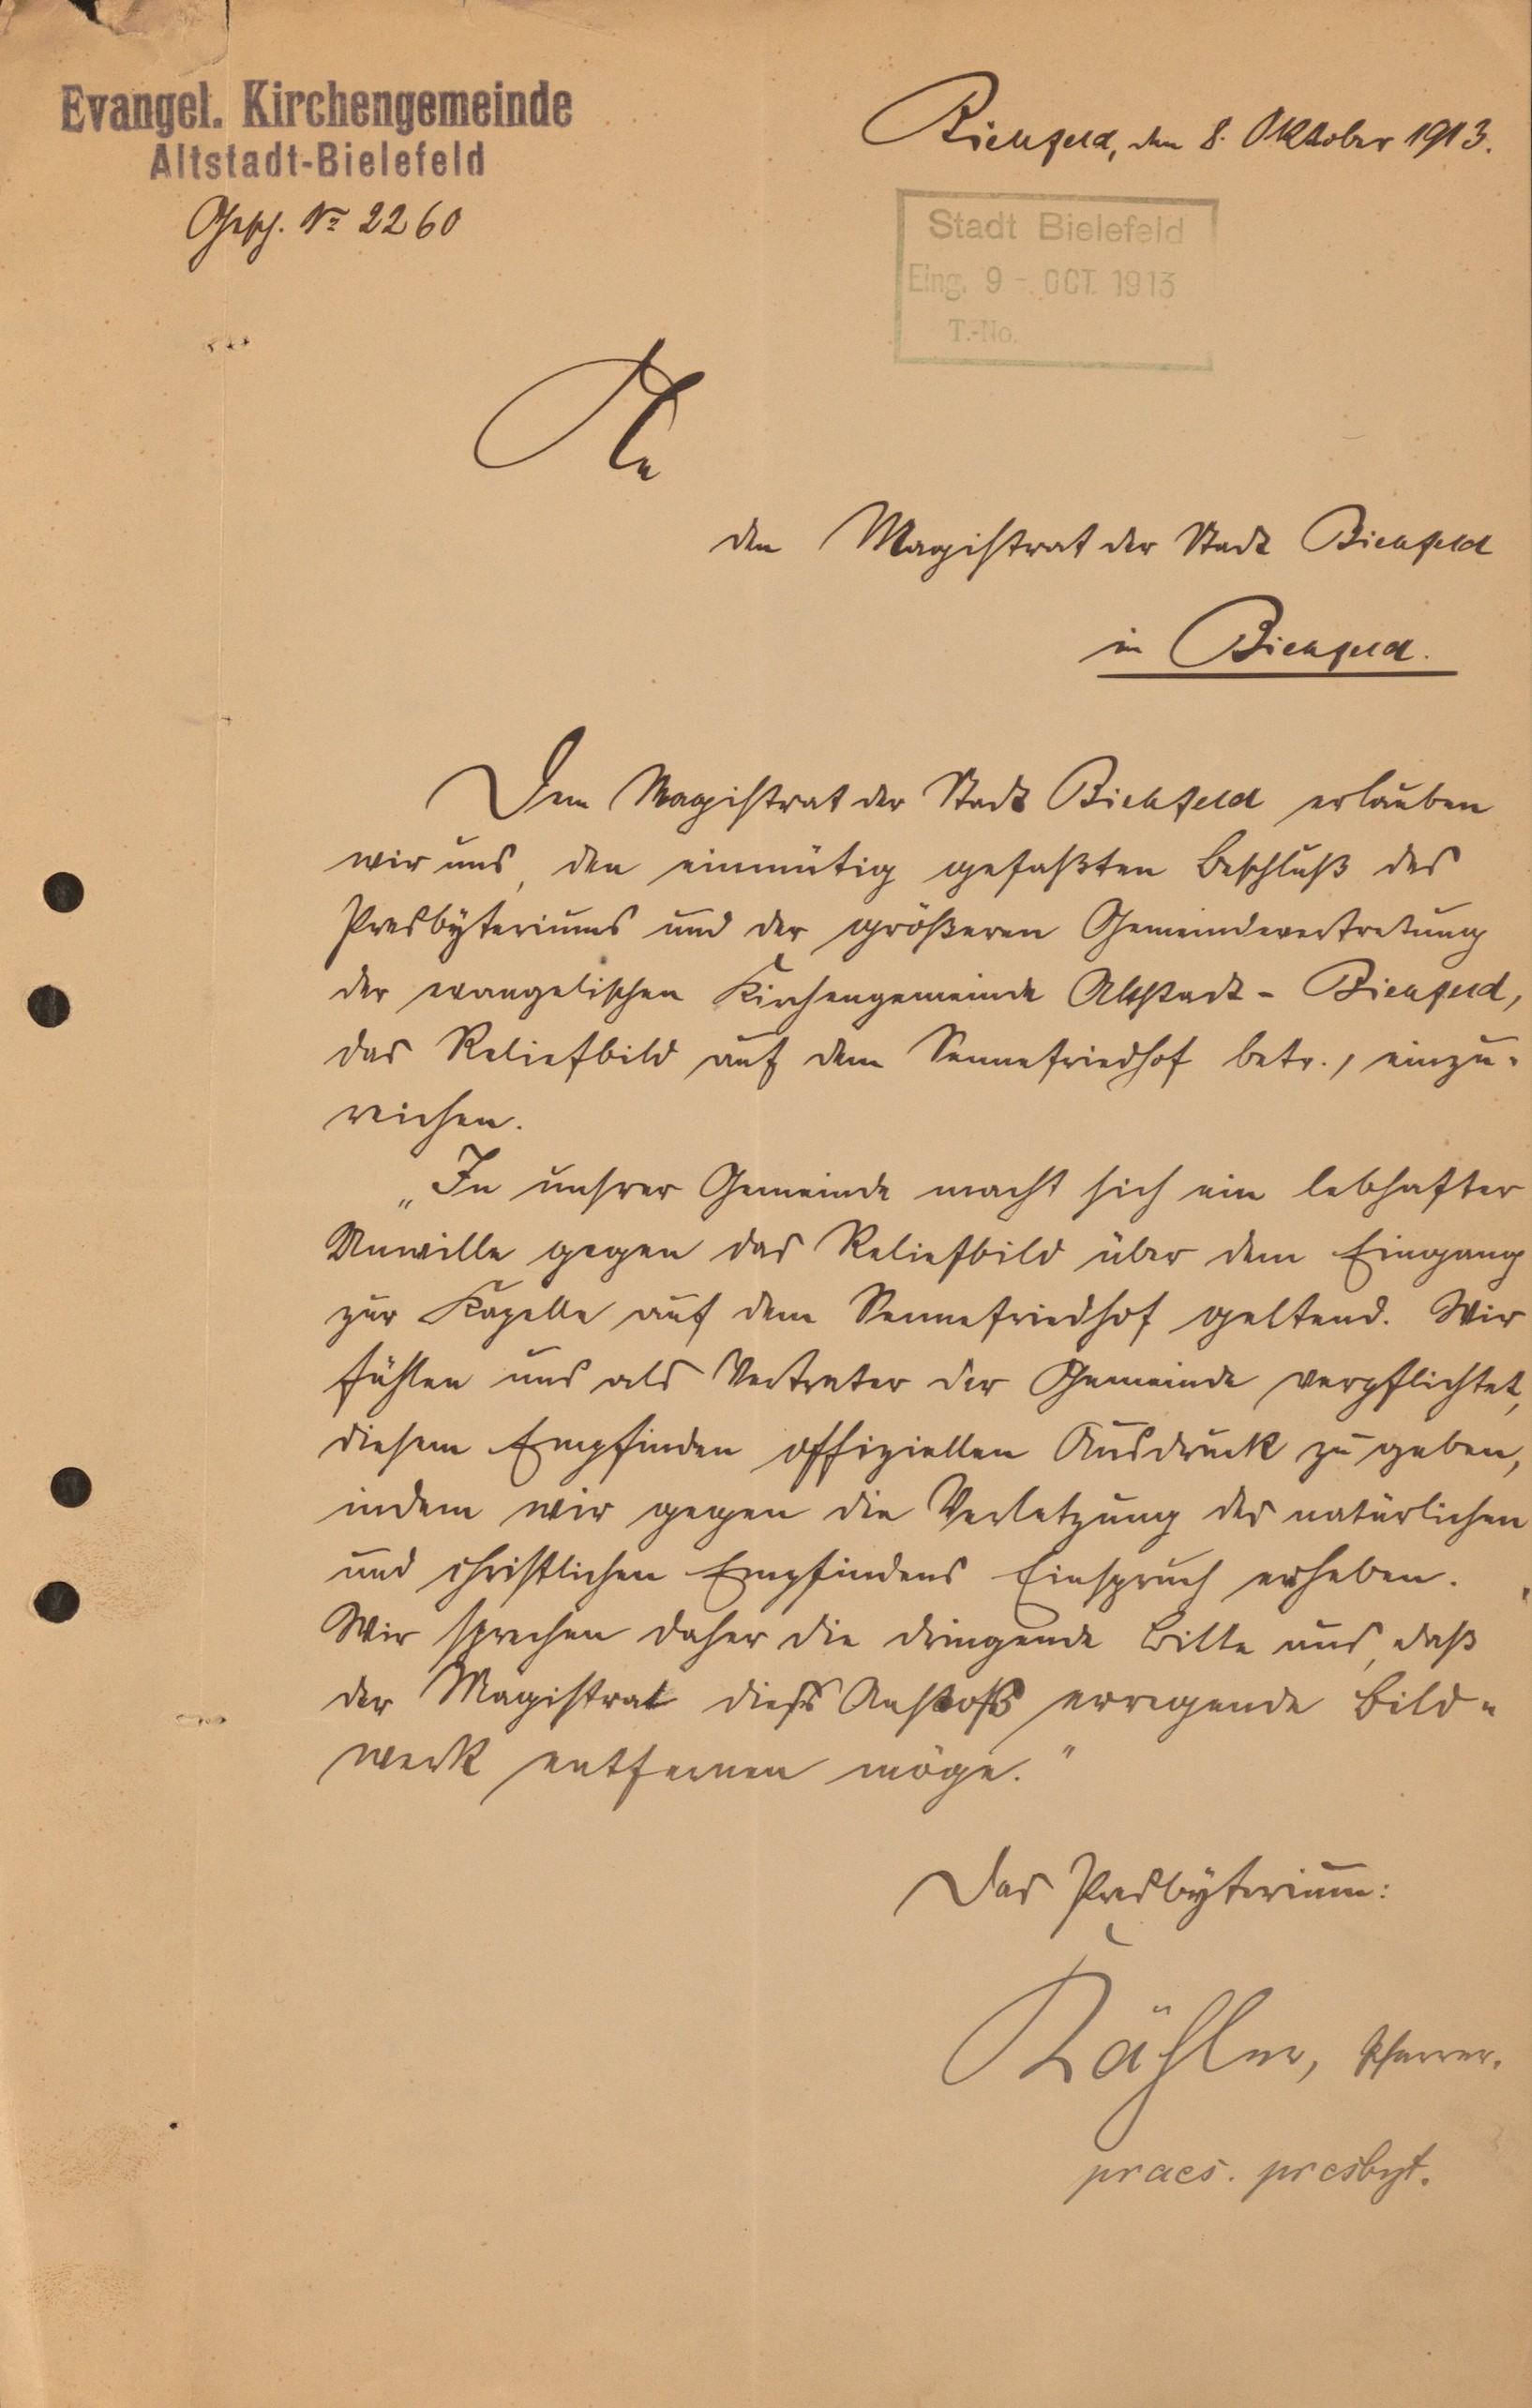 Evangel. Kirchengemeinde
Altstadt-Bielefeld
Gesch. No 2260
Bielefeld, den 8. Oktober 1913.
Stadt Bielefeld
Eing. 9 - OCT. 1913
T.-No.
An
den Magistrat der Stadt Bielefeld
in Bielefeld.
Dem Magistrat der Stadt Bielefeld erlauben
wir uns, den einmütig gefaßten Beschluß des
Presbyteriums und der größeren Gemeindevertretung
der evangelischen Kirchengemeinde Altstadt-Bielefeld,
das Reliefbild auf dem Sennefriedhof betr., einzu-
reichen.
„In unsrer Gemeinde macht sich ein lebhafter
Unwille gegen das Reliefbild über dem Eingang
zur Kapelle auf dem Sennefriedhof geltend. Wir
fühlen uns als Vertreter der Gemeinde verpflichtet,
diesem Empfinden offiziellen Ausdruck zu geben,
indem wir gegen die Verletzung des natürlichen
und christlichen Empfindens Einspruch erheben.
Wir sprechen daher die dringende Bitte aus, daß
der Magistrat dies Anstoß erregende Bild-
werk entfernen möge."
Das Presbyterium:
Kähler, Pfarrer.
praes. presbyt.